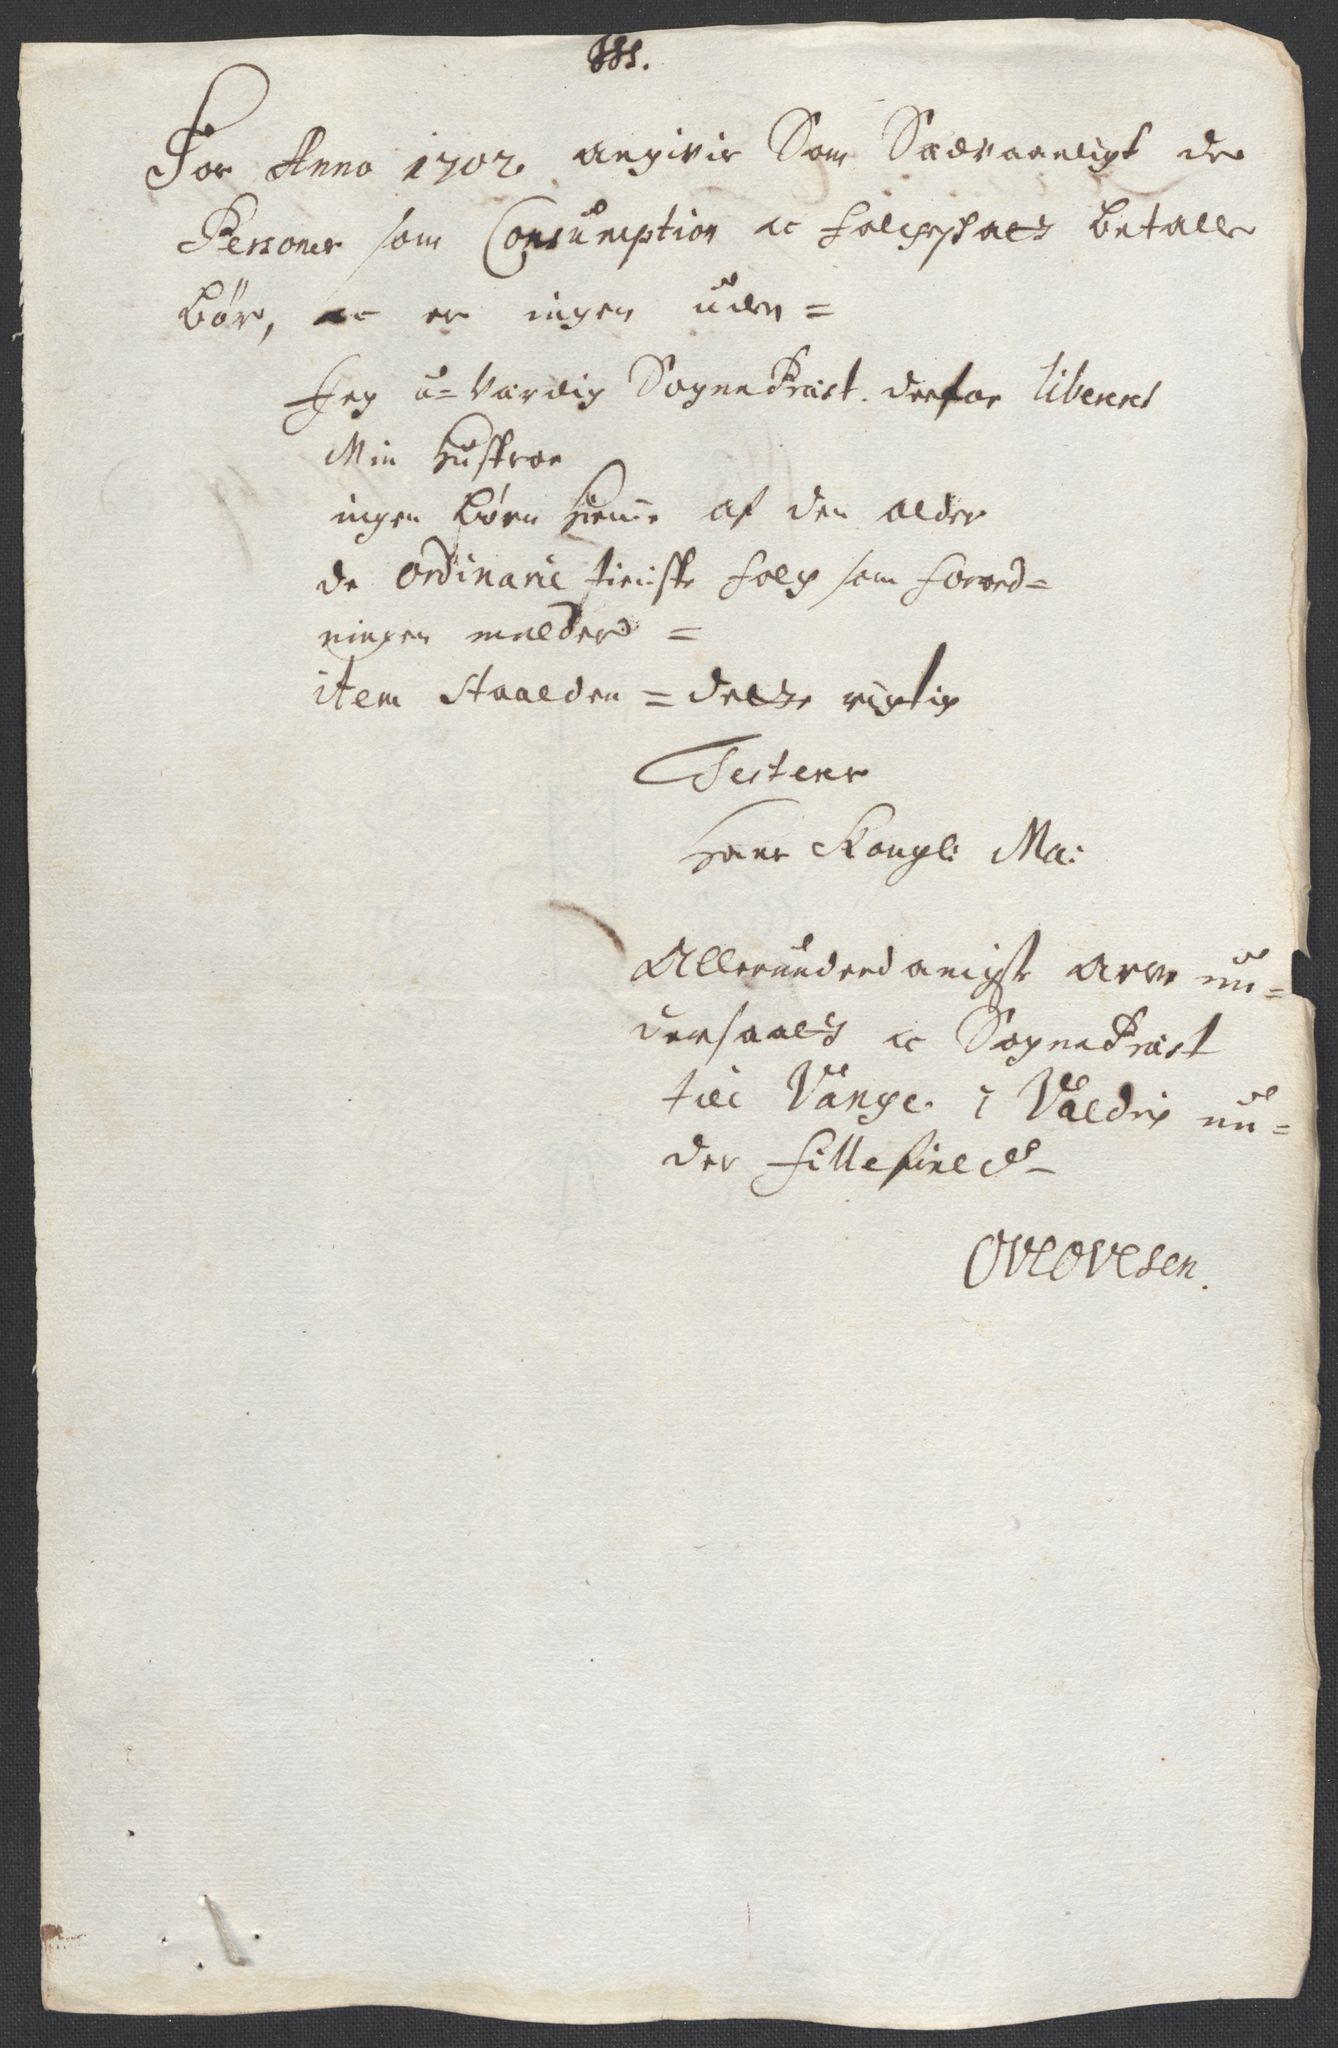 For Anno 1702 angivis Som Sædvaanligt de
Personer som Consumption oc folcheskatt betalle
bør, oc er ingen uden =
Jeg u=værdig SognePræst derfor liberert
Min Hustroe
ingen børn hiemme af den alder
de ordinarie tieniste folch som forord=
ningen melder =
item Staalden = dette rigtig
Testerer
Hans Kongl: Ma:
Allerunderdanigste arve un=
dersaatt oc SognePræst
till Vange i Valdris un=
der fillefield
OveOvesen.